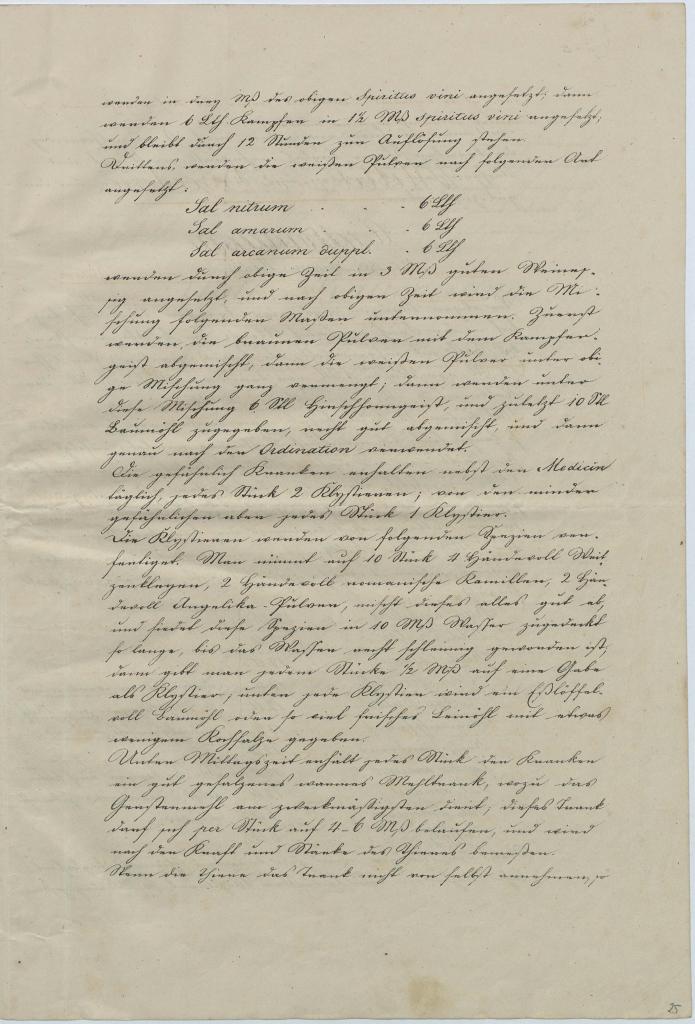 werden in drey Mß des obigen Spiritus vini angesetzt; dann
werden 6 Lth Kampfer in 1½ Mß Spiritus vini angesetzt,
und bleibt durch 12 Stunden zur Auflösung stehen.
Drittens werden die weißen Pulver nach folgender Art
angesetzt:
Sal nitrum . . . 6 Lth
Sal amarum . . . 6 Lth
Sal arcanum duppl. . 6 Lth
werden durch obige Zeit in 3 Mß guten Weines-
sig angesetzt, und nach obigen Zeit wird die Mi-
schung folgender Maßen unternommen. Zuerst
werden, die braunen Pulver mit dem Kampfer-
geist abgemischt, dann die weißen Pulver unter obi-
ge Mischung ganz vermengt; dann werden unter
diese Mischung 6 Stl Hirschhorngeist, und zuletzt 10 Stl
Baumöhl zugegeben, recht gut abgemischt, und dann
genau nach der Ordination verwendet.
Die gefährlich Kranken erhalten nebst der Medicin
täglich, jedes Stück 2 Klystiere; von den minder
gefährlichen aber jedes Stück 1 Klystier.
Die Klystieren werden von folgenden Spezien ver-
fertiget. Man nimmt auf 10 Stück 4 Händevoll Weit-
zenkleyen, 2 Händevoll romanische Kamillen, 2 Hän-
devoll Angelika-Pulver, mischt dieses alles gut ab,
und siedet diese Spezien in 10 Mß Wasser zugedeckt
so lange, bis das Wasser recht schleimig geworden ist,
dann gibt man jedem Stücke ½ Mß auf eine Gabe
als Klystier; unter jede Klystier wird ein Eßlöffel-
voll Baumöhl oder so viel frisches Leinöhl mit etwas
wenigem Kochsalze gegeben.
Unter Mittagszeit enhält jedes Stück der Kranken
ein gut gesalzenes warmes Mehltrank, wozu das
Gerstenmehl am zweckmässigsten dient, dieses Trank
darf sich per Stück auf 4-6 Mß belaufen, und wird
nach der Kraft und Stärke des Thieres bemeßen.
Wenn die Thiere das Trank nicht von selbst annehmen, so
25